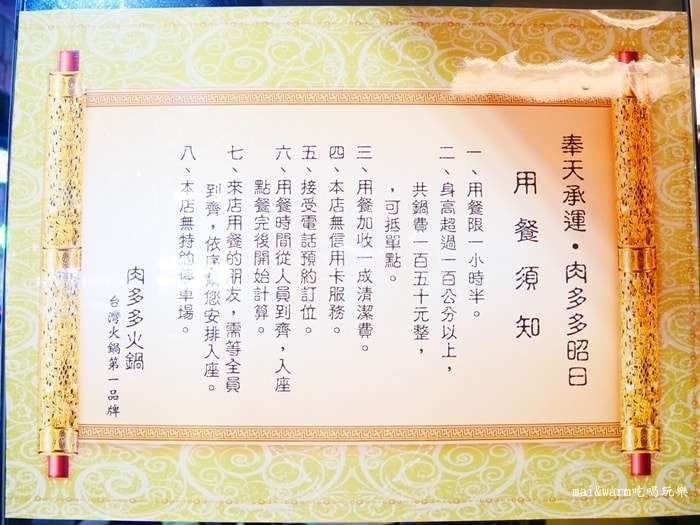 奉天承運・肉多多昭日
用餐須知
一、用餐限一小時半。
二、身高超過一百公分以上，
共鍋費一百五十元整，
，可抵單點。
三、用餐加收一成清潔費。
四、本店無信用卡服務。
五、接受電話預約訂位。
六、用餐時間從人員到齊，入座
點餐完後開始計算。
七、來店用餐的朋友，需等全員
到齊，依序幫您安排入座。
八、本店無特約停車場。
肉多多火鍋
台灣火鍋第一品牌
mai&warm吃喝玩樂